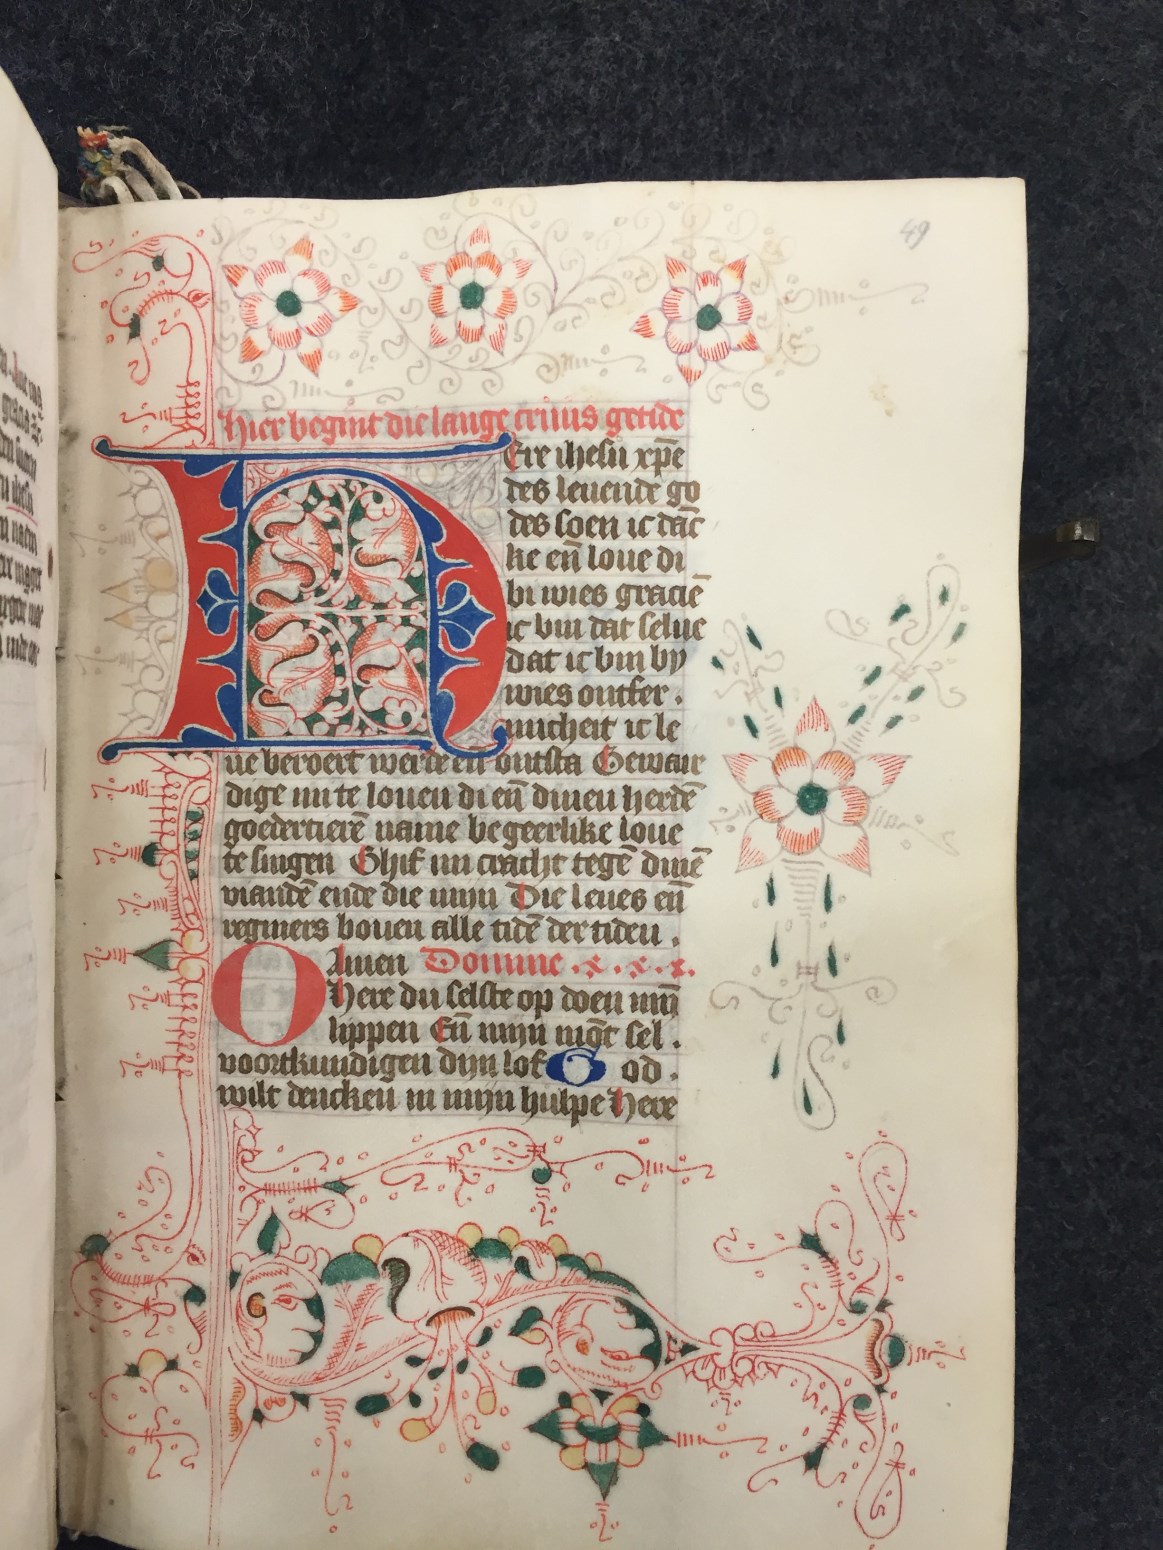 49
hier begint die lange cruus getide
HEre ihesu xp̄e
des leuende go
des soen ic dāc
ke en̄ loue di
bi wies graciē
ic bin dat selue
dat ic bin by
wies ontfer .
micheit ic le
ue beroert werde en̄ ontsta Gewaer
dige mi te louen di en̄ dinen herdē
goedertierē name begeerlike loue
te singen Ghif mi cracht tegē dinē
viandē ende die mijn Die leues en̄
regniers bouen alle tidē der tiden .
Amen Domine . x . x . x .
O here du selste op doen mijn
lippen En̄ mijn mōt sel .
voortkundigen dijn lof God .
wilt dencken in mijn hulpe here